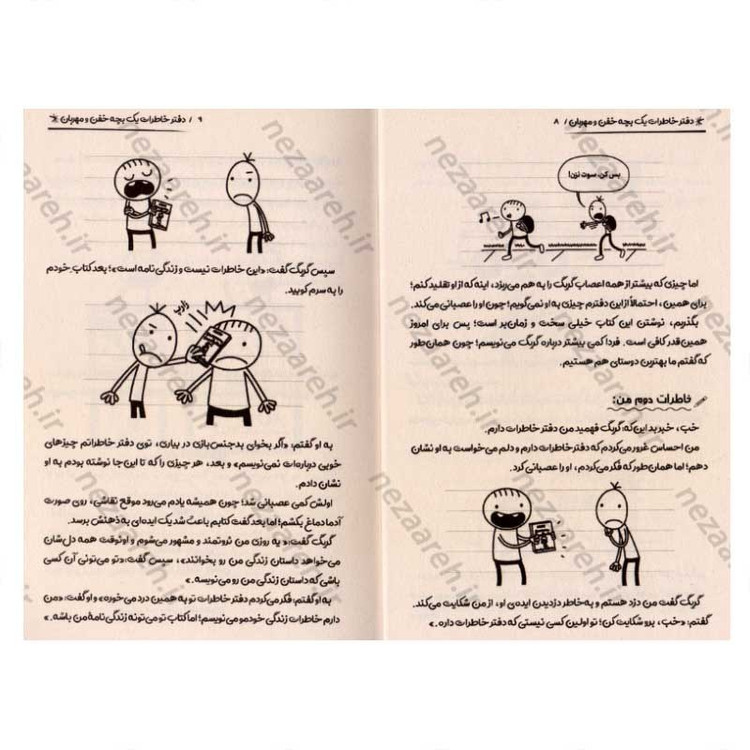 دفتر خاطرات یک بچه خفن و مهربان / ۸
بس کن، سوت نزن!
اما چیزی که بیشتر از همه اعصاب گرگ را به هم می‌ریزد، اینه که از او تقلید کنم؛
برای همین، احتمالاً از این دفترم چیزی به او نمی‌گویم؛ چون او را عصبانی می‌کند.
بگذریم، نوشتن این کتاب خیلی سخت و زمان‌بر است؛ پس برای امروز
همین‌قدر کافی است. فردا کمی بیشتر درباره گرگ می‌نویسم؛ چون همان‌طور
که گفتم ما بهترین دوستای هم هستیم.
خاطرات دوم من:
خب، خبر بد این‌که گرگ فهمید من دفتر خاطرات دارم.
من احساس غرور می‌کردم که دفتر خاطرات دارم و دلم می‌خواست به او نشان
دهم؛ اما همان‌طور که فکر می‌کردم، او را عصبانی کرد.
گرگ گفت من دزد هستم و به‌خاطر دزدیدن ایده‌ی او، از من شکایت می‌کند.
گفتم: «خب، برو شکایت کن؛ تو اولین کسی نیستی که دفتر خاطرات داره.»
۹ / دفتر خاطرات یک بچه خفن و مهربان
سپس گرگ گفت: «این خاطرات نیست و زندگی‌نامه است»؛ بعد کتاب خودم
را به سرم کوبید.
زارپ
به او گفتم: «اگر بخوای بدجنس‌بازی در بیاری، توی دفتر خاطراتم چیزهای
خوبی درباره‌ات نمی‌نویسم» و بعد، هر چیزی را که تا این‌جا نوشته بودم به او
نشان دادم.
اولش کمی عصبانی شد؛ چون همیشه یادم می‌رود موقع نقاشی، روی صورت
آدما دماغ بکشم؛ اما بعد گفت کتابم باعث شد یک ایده‌ای به ذهنش برسد.
گرگ گفت: «یه روزی من ثروتمند و مشهور می‌شوم و اونوقت همه دل‌شان
می‌خواهد داستان زندگی من رو بخوانند.»، سپس گفت: «تو می‌تونی آن کسی
باشی که داستان زندگی من رو می‌نویسه.»
به او گفتم: فکر می‌کردم دفتر خاطرات تو به همین درد می‌خوره» و او گفت: «من
دارم خاطرات زندگی خودمو می‌نویسم؛ اما کتاب تو می‌تونه زندگی‌نامهٔ من باشه.»
nezaareh.ir